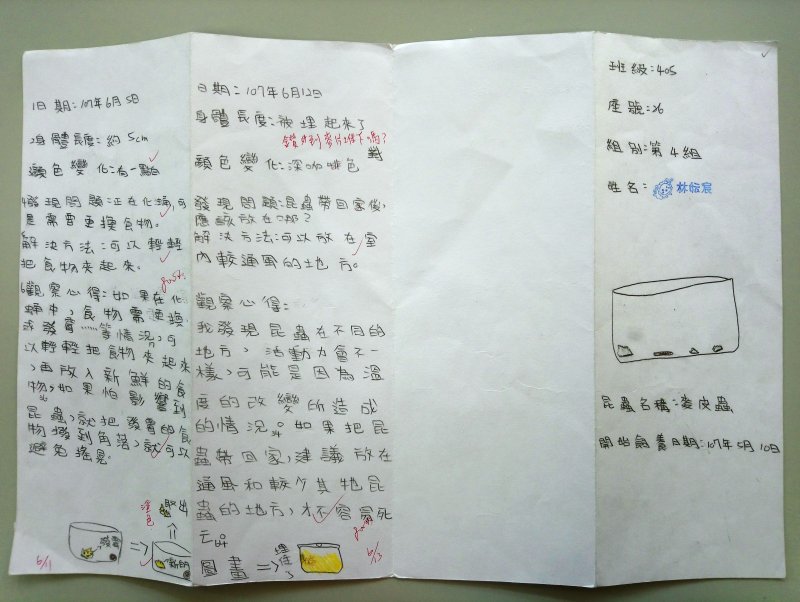 1日期:107年6月5日
2身體長度:約5cm
3顏色變化:有一點白
4發現問題:正在化蛹,可
是需要更換食物。
解決方法:可以輕輕
把食物夾起來。
good!
6觀察心得:如果在化
蛹中,食物需更換
或發霉……等情況,可
以輕輕把食物夾起來
,再放入新鮮的食
物,如果怕影響到
昆蟲,就把發霉的食
物撥到角落,就可以
避免搖晃。
塗色
取出
發霉
新的
6/11
日期:107年6月12日
身體長度:被埋起來了
鑽到麥片堆下嗎?
對
顏色變化:深咖啡色
發現問題:昆蟲帶回家後,
應該放在哪?
解決方法:可以放在室
內較通風的地方。
觀察心得:
我發現昆蟲在不同的
地方,活動力會不一
樣,可能是因為溫
度的改變所造成
的情況。如果把昆
蟲帶回家,建議放在
通風和較少其他昆
蟲的地方,才不容易死
亡
good!
圖畫
埋住了
6/13
班級:405
座號:26
組別:第4組
姓名:
林宸
昆蟲名稱:麥皮蟲
開始飼養日期:107年5月10日